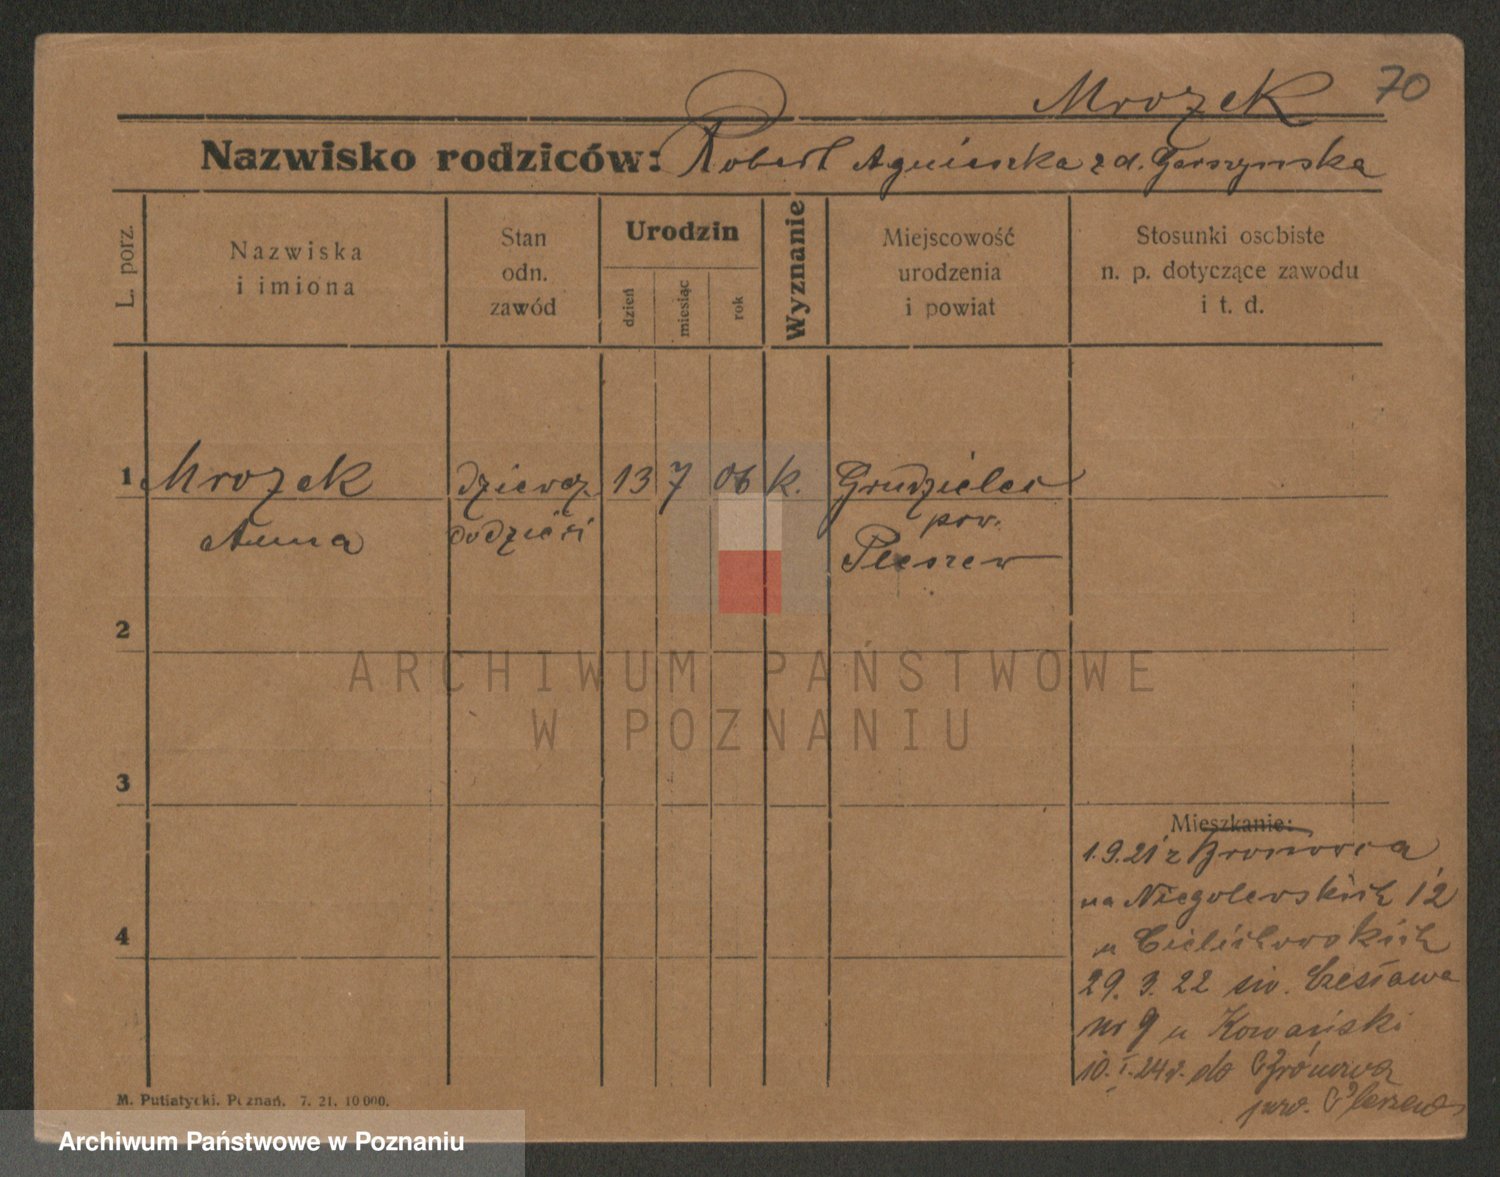 Mrozek 70
Nazwisko rodziców: Robert Agnieszka z d. Garszynska
L. porz.
Nazwiska
i imiona
Stan
odn.
zawód
Urodzin
dzień
miesiąc
rok
Wyznanie
Miejscowość
urodzenia
i powiat
Stosunki osobiste
n. p. dotyczące zawodu
i t. d.
1 Mrozek dziewcz. 13 7 06 k. Grudzielec
Anna do dzieci pow.
Pleszew
2
3
4
Mieszkanie:
1.9.21 z Bronowa
na Niegolewskich 12
u Cielichowskich
29. 3. 22 św. Czesława
nr 9 u Kowalski
10. I. 24 r. do Bronowa
pow. Pleszew
M. Putiatycki. Poznań. 7. 21. 10 000.
ARCHIWUM PAŃSTWOWE
W POZNANIU
Archiwum Państwowe w Poznaniu